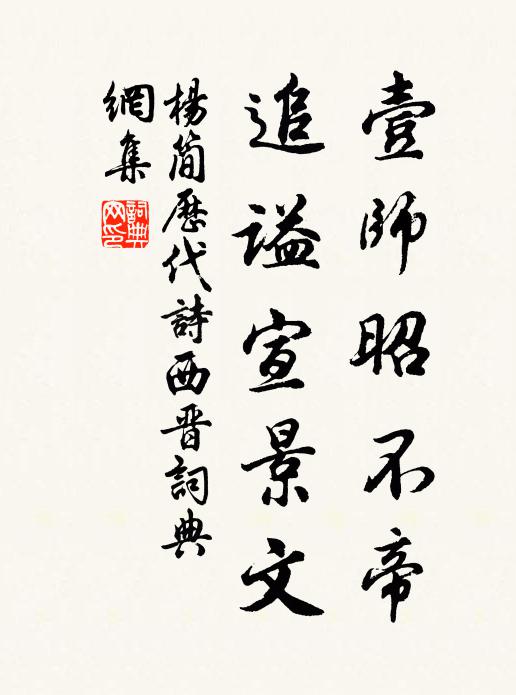 壹師昭不帝
追謚宣景文
楊簡歷代詩西晋詞典
網集
詞典
网印